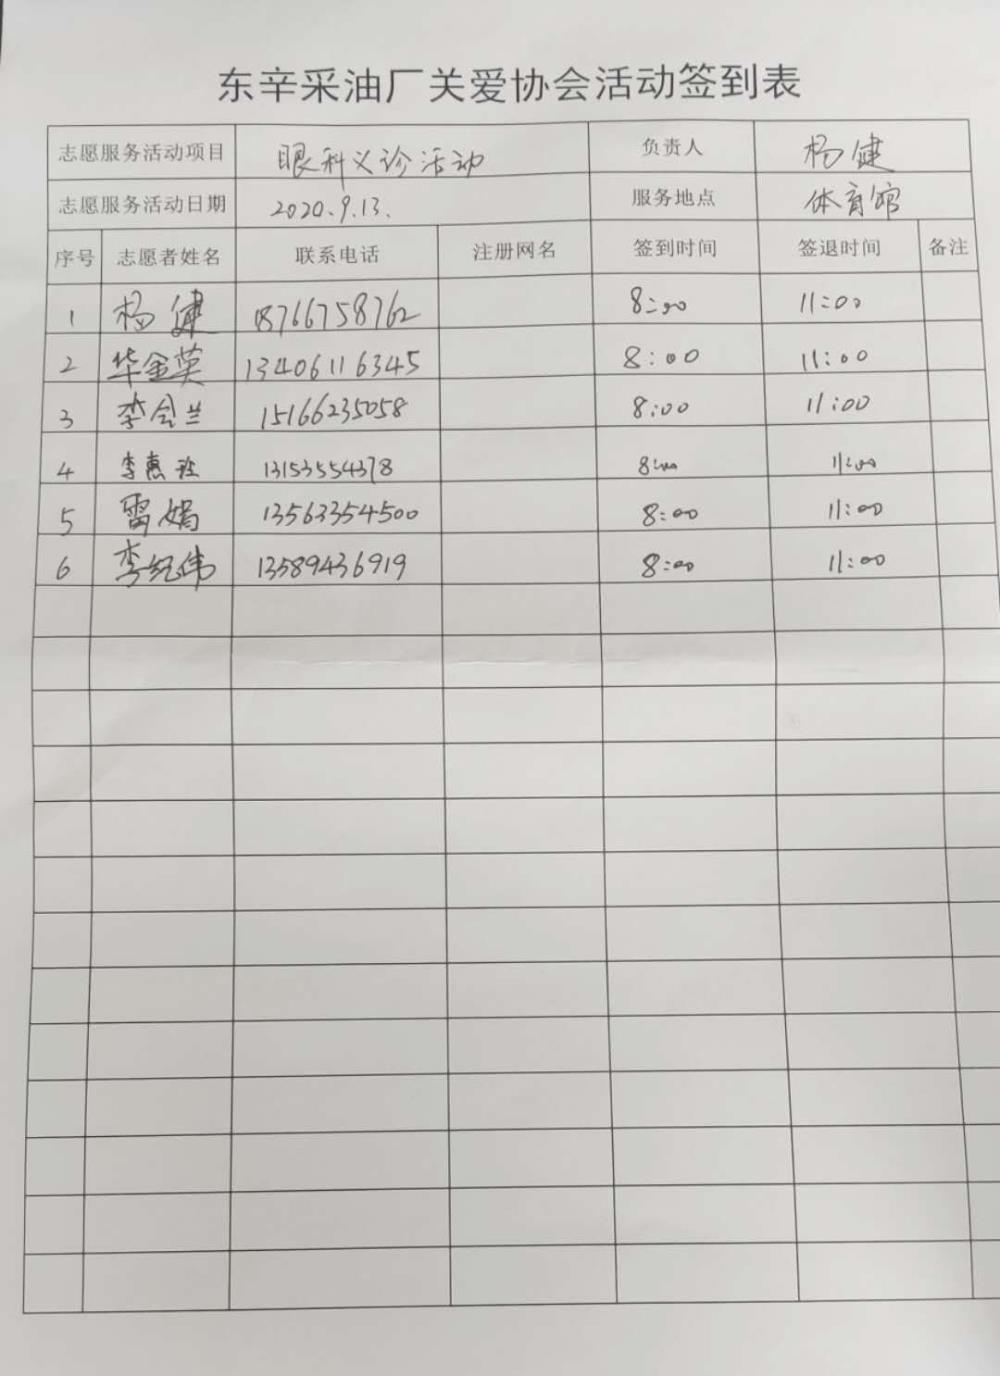 东辛采油厂关爱协会活动签到表
志愿服务活动项目 眼科义诊活动 负责人 杨健
志愿服务活动日期 2020.9.13. 服务地点 体育馆
序号 志愿者姓名 联系电话 注册网名 签到时间 签退时间 备注
1 杨健 18766758762 8:00 11:00
2 华金英 13406116345 8:00 11:00
3 李会兰 15166235058 8:00 11:00
4 李惠 13153554378 8:00 11:00
5 雷娟 13563354500 8:00 11:00
6 李纪伟 13589436919 8:00 11:00